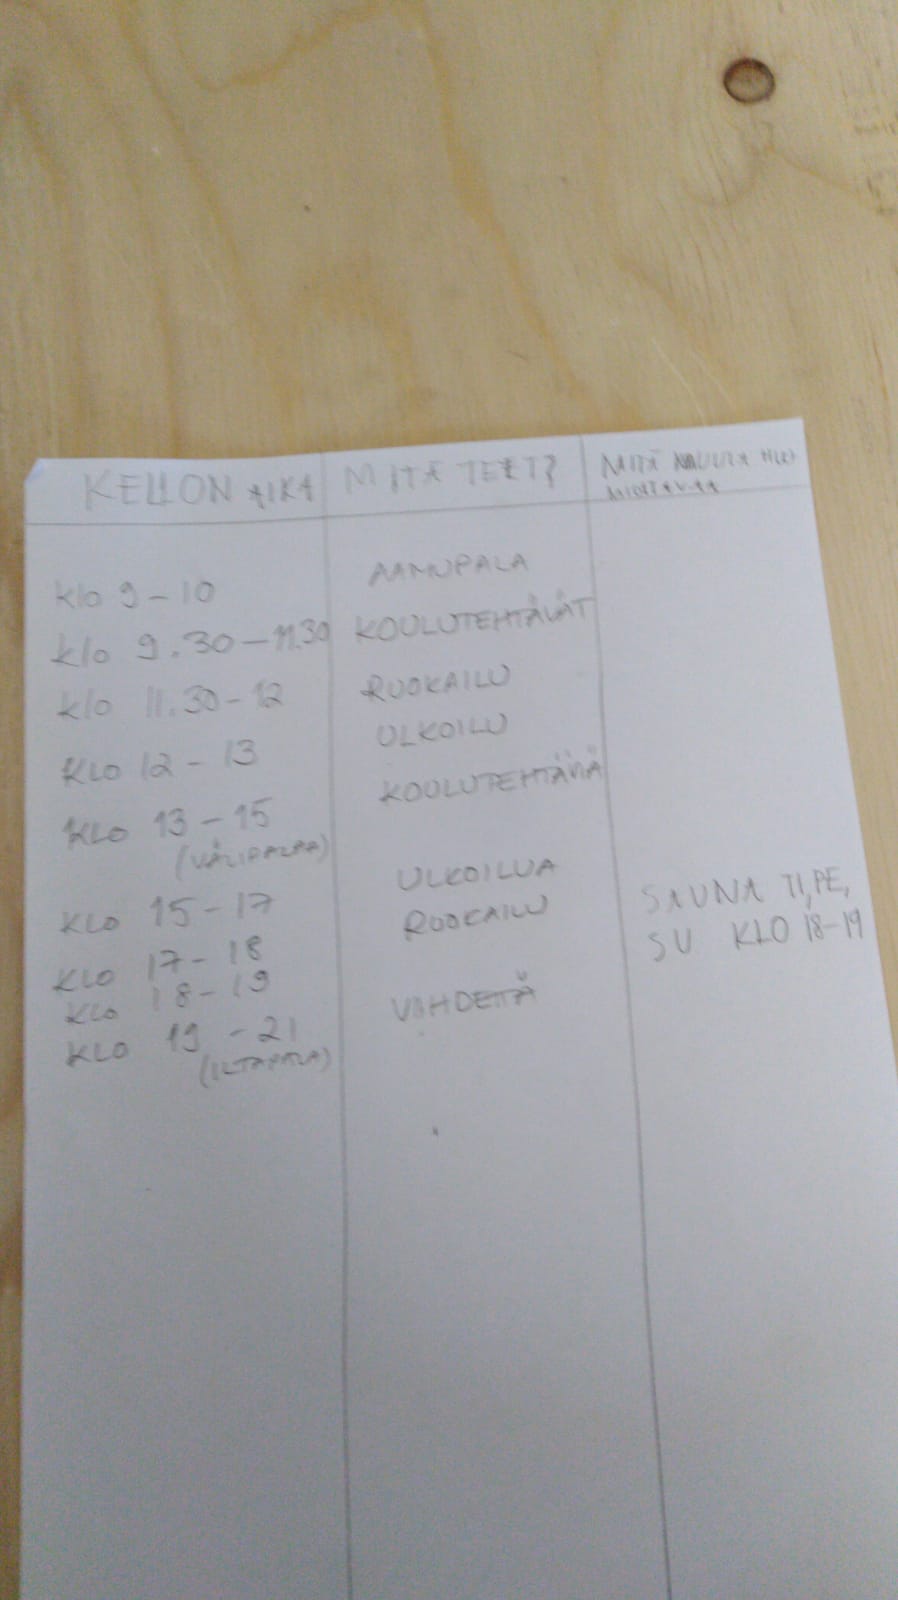 KELLON AIKA MITÄ TEET? MITÄ MUUTA
klo 9-10 AAMUPALA
klo 9.30-11.30 KOULUTEHTÄVÄT
klo 11.30-12 RUOKAILU
KLO 12-13 ULKOILU
KLO 13-15 KOULUTEHTÄVIÄ
(VÄLIPALAA)
KLO 15-17 ULKOILUA
KLO 17-18 RUOKAILU
KLO 18-19 SAUNA TI, PE,
SU KLO 18-19
KLO 19-21
(ILTAPALA)